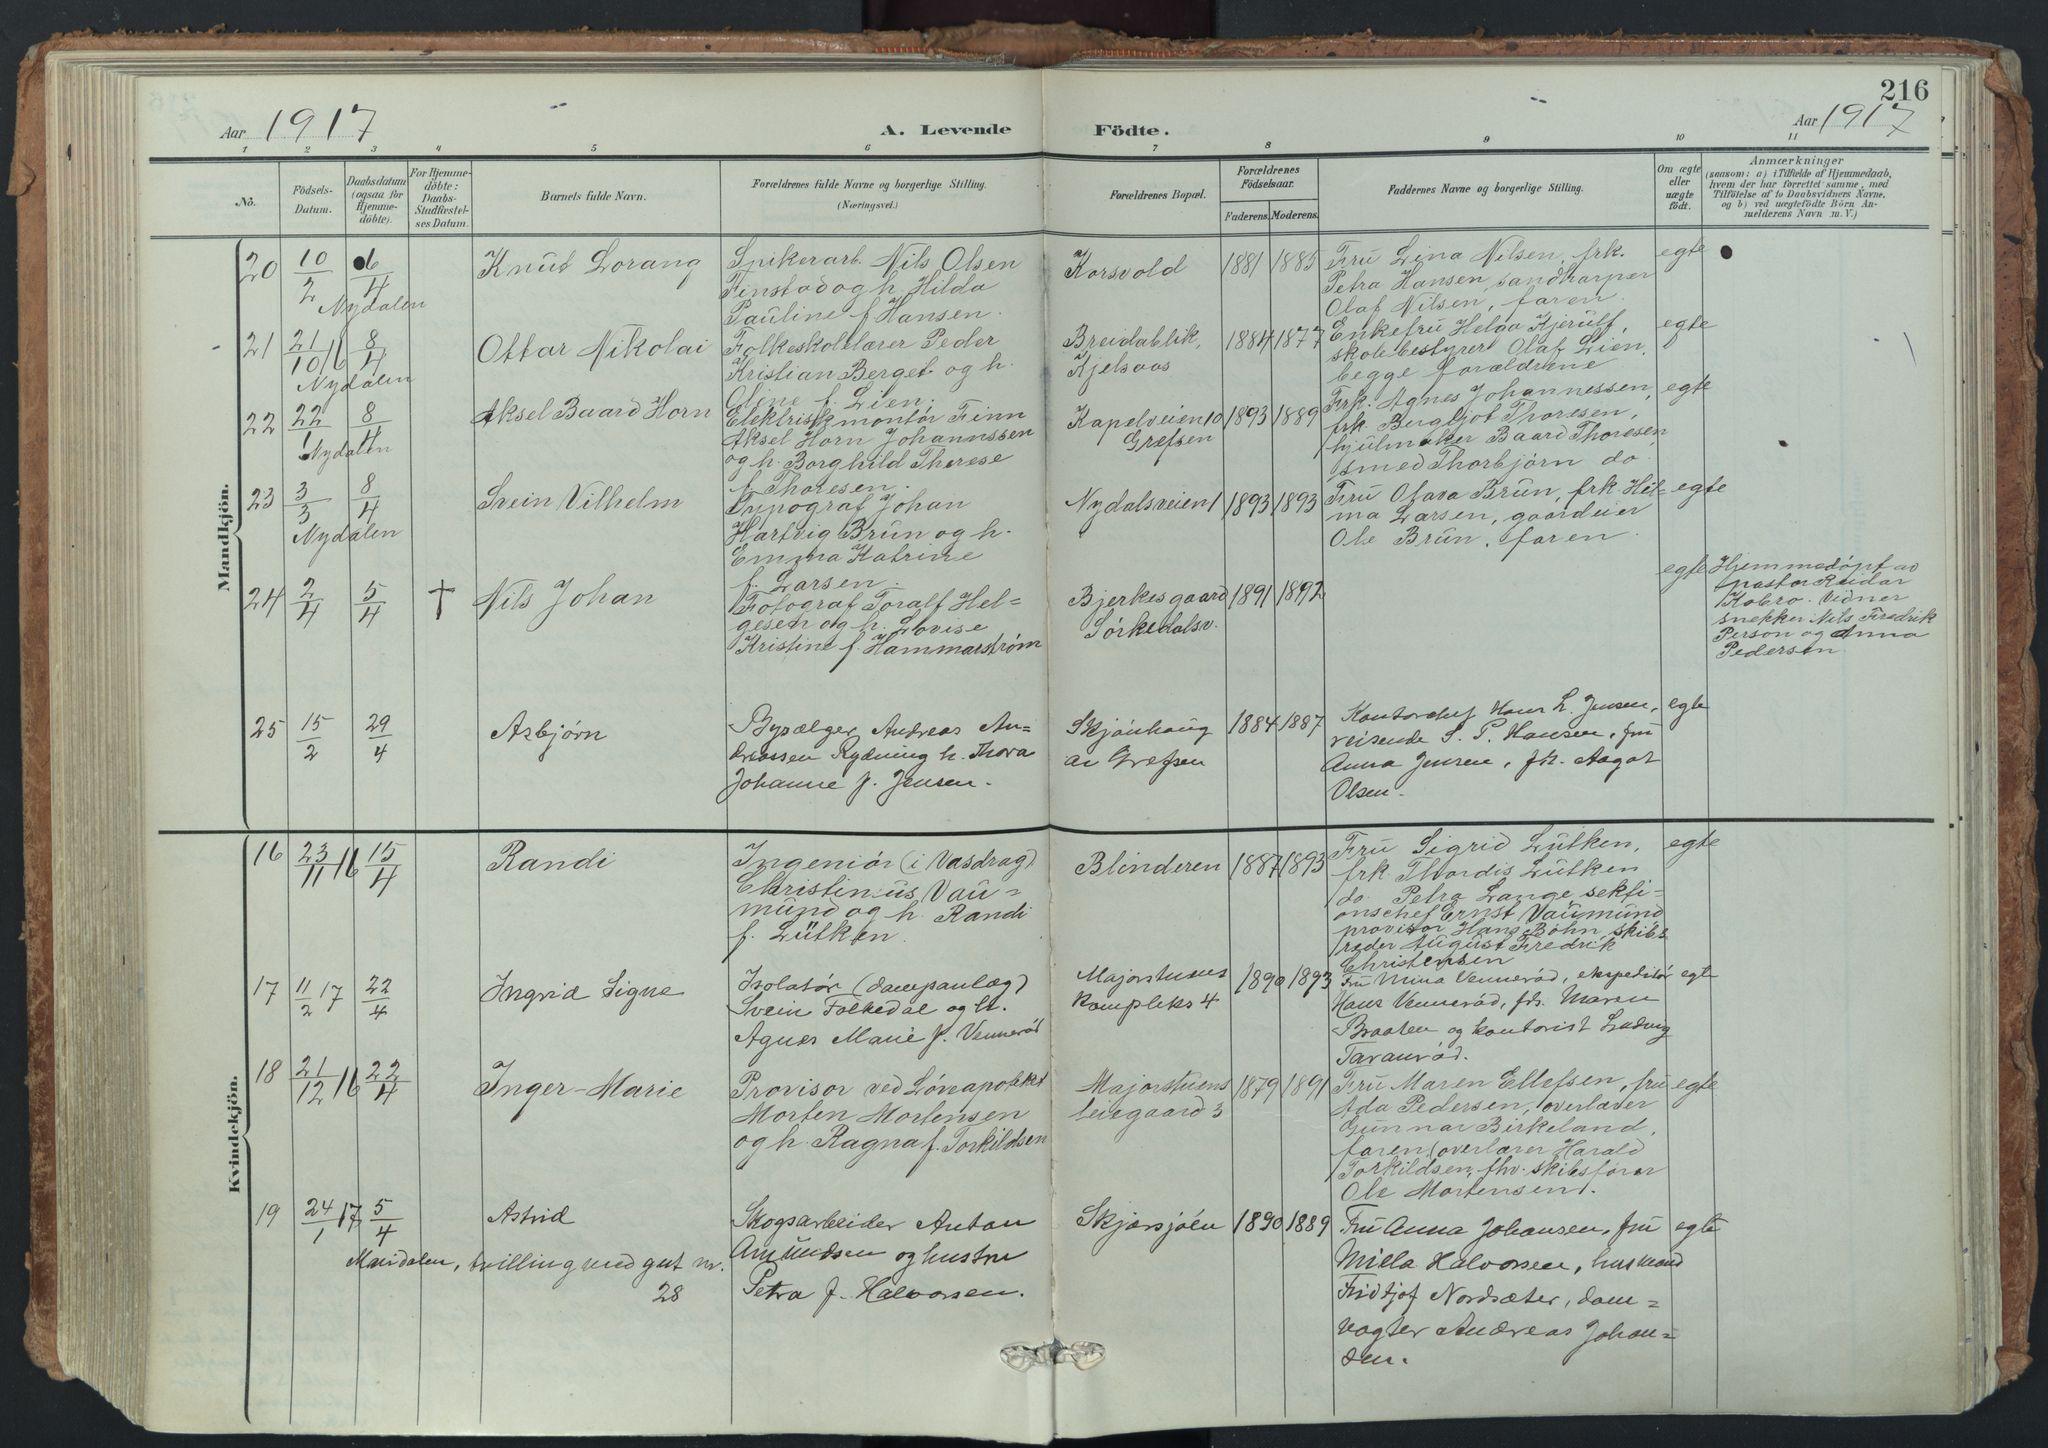 216
Aar 1917
A. Levende Födte.
Aar 1917
1 2 3 4 5 6 7 8 9 10 11
No.
Födsels-
Datum.
Daabsdatum
(ogsaa for
Hjemme-
döbte).
For Hjemme-
döbte:
Daabs-
Stadfæstel-
ses Datum.
Barnets fulde Navn.
Forældrenes fulde Navne og borgerlige Stilling.
(Næringsvei.)
Forældrenes Bopæl.
Forældrenes
Födselsaar.
Faderens. Moderens.
Faddernes Navne og borgerlige Stilling.
Om ægte
eller
uægte
födt.
Anmærkninger
(saasom: a) i Tilfælde af Hjemmedaab,
hvem der har forrettet samme, med
Tilföielse af to Daabsvidners Navne,
og b) ved uægtefödte Börn An-
melderens Navn m. V.)
Mandkjön.
20 10/2 6/4
Nydalen
Knut Lorang
Spikerarb. Nils Olsen
Finstad og h. Hilda
Pauline f. Hansen.
Korsvold
1881 1885
Fru Lina Nilsen, frk.
Petra Hansen, sandkarper
Olaf Nilsen, faren.
egte
21 21/10 16 8/4
Nydalen
Ottar Nikolai
Folkeskolelærer Peder
Kristian Berget og h.
Oline f. Lien.
Breidablik,
Kjelsaas
1884 1877
Enkefru Helga Kjerulf,
skolebestyrer Olaf Lien,
begge forældrene
egte
22 22/1 8/4
Nydalen
Aksel Baard Horn
Elektrisk montør Finn
Aksel Horn Johannssen
og h. Borghild Therese
f. Thoresen.
Kapelveien 10
Grefsen
1893 1889
Frk. Agnes Johannessen,
frk Bergljot Thoresen,
hjulmaker Baard Thoresen
smed Thorbjørn do
egte
23 3/3 8/4
Nydalen
Svein Vilhelm
Typograf Johan
Hartvig Brun og h.
Emma Katrine
f. Larsen.
Nydalsveien 1
1893 1893
Fru Olava Brun, frk Hil-
ma Larsen, gaardeier
Ole Brun, faren.
egte
24 2/4 5/4 †
Nils Johan
Fotograf Toralf Hel-
gesen og h. Lovise
Kristine f. Hammarstrøm
Bjerkesgaard
Sørkedalsv.
1891 1892
egte
Hjemmedøpt av
pastor Reidar
Kobro. Vidner
snekker Nils Fredrik
Person og Anna
Pedersen
25 15/2 29/4
Asbjørn
Bysælger Andreas An-
dreassen Rydning h. Thora
Johanne f. Jensen.
Skjønhaug
av Grefsen
1884 1887
Kontorchef Hans L. Jensen,
reisende S. P. Hansen, fru
Anna Jensen, frk. Aagot
Olsen.
egte
Kvindekjön.
16 23/11 16 15/4
Randi
Ingeniør (i Vasdrag)
Christinius Vau-
mund og h. Randi
f. Lütken.
Blinderen
1887 1893
Fru Sigrid Lütken,
frk Thordis Lütken
do Petra Lange sekti-
onschef Ernst Vaumund
provisor Hans Bøhn skibs
reder August Fredrik
Christensen
egte
17 11/2 17 22/4
Ingrid Signe
Isolatør (dampanlæg)
Svein Folkedal og h.
Agnes Marie f. Vennerød
Majorstuens
kompleks 4
1890 1893
Fru Mina Vennerød, ekspeditør
Hans Vennerød, frk. Maren
Braaten og kontorist Ludvig
Taranrød.
egte
18 21/12 16 22/4
Inger-Marie
Provisor ved Løveapoteket
Morten Mortensen
og h. Ragna f. Torkildsen
Majorstuens
leiegaard 3
1879 1891
Fru Maren Ellefsen, fru
Ada Pedersen, overlærer
Gunnar Birkeland,
faren (overlærer Harald
Torkildsen, fhv. skibsfører
Ole Mortensen).
egte
19 24/1 17 5/4
Astrid
Maridalen, tvilling med gut nr.
28
Skogsarbeider Anton
Amundsen og hustru
Petra f. Halvorsen.
Skjærsjøen
1890 1889
Fru Anna Johansen, fru
Milla Halvorsen, husmand
Fridtjof Nordsæter, dam-
vogter Andreas Johan-
sen.
egte